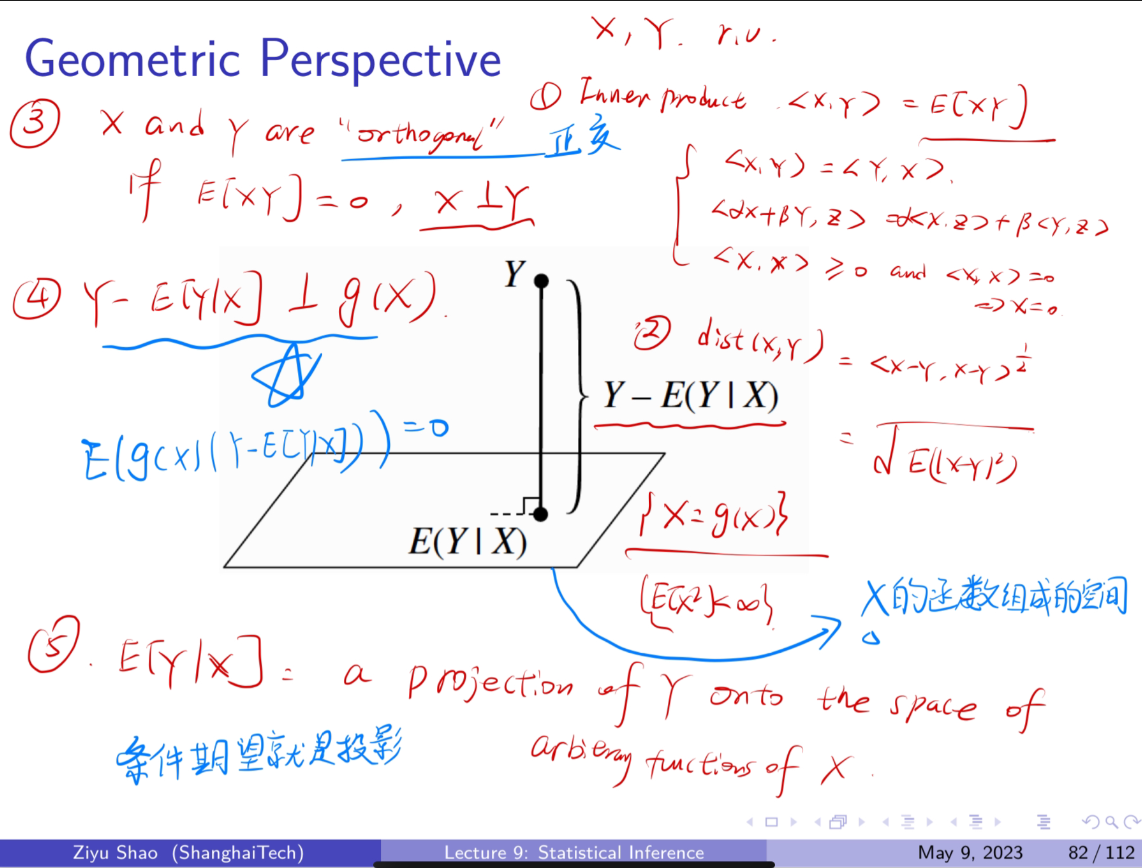 Geometric Perspective
X, Y. r.v.
① Inner product. <X,Y> = E[XY]
<X,Y> = <Y,X>.
<αX+βY, Z> = α<X.Z>+β<Y,Z>
<X,X> ≥0 and <X,X>=0
=> X=0.
③ X and Y are "orthogonal" 正交
if E[XY]=0, X⊥Y
④ Y- E[Y|X] ⊥ g(X).
E(g(X)(Y-E[Y|X]))=0
② dist(X,Y) = <X-Y, X-Y>^{1/2}
= √E((X-Y)²)
Y
Y – E(Y | X)
E(Y | X)
{X=g(X)}
{E[X²]<∞}
X的函数组成的空间。
⑤. E[Y|X] = a projection of Y onto the space of
arbitrary functions of X.
条件期望就是投影
Ziyu Shao (ShanghaiTech)
Lecture 9: Statistical Inference
May 9, 2023
82 / 112